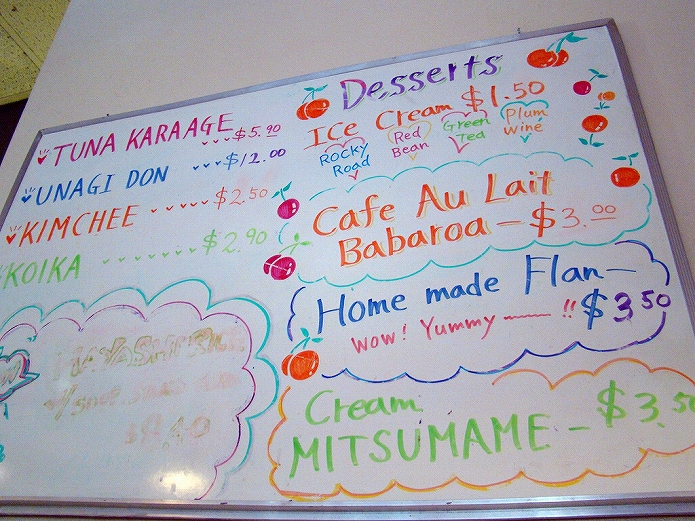 TUNA KARAAGE $5.90
UNAGI DON $12.00
KIMCHEE $2.50
KOIKA $2.90
$8.40
Desserts
Ice Cream $1.50
Rocky Road
Red Bean
Green Tea
Plum Wine
Cafe Au Lait
Babaroa - $3.00
Home made Flan -
Wow! Yummy !! $3.50
Cream
MITSUMAME - $3.50